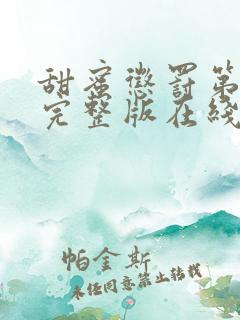 甜蜜惩罚第
完整版在线
帕金斯
未经同意禁止转载